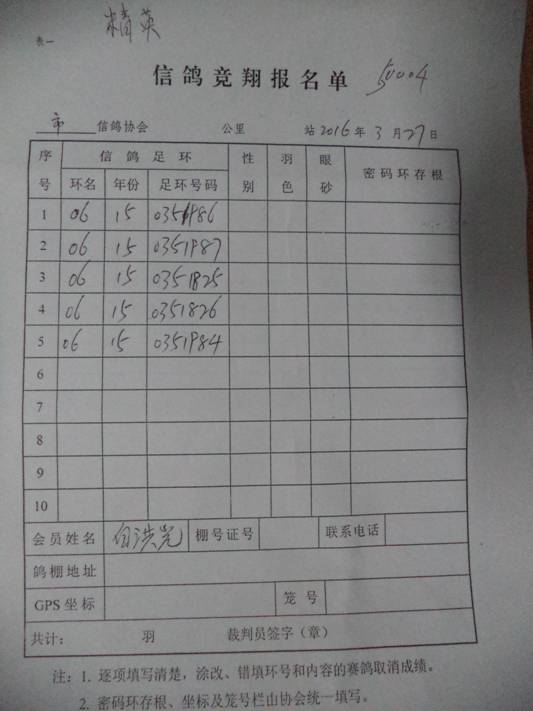 精英
表一
信鸽竞翔报名单 50004
市 信鸽协会 公里 站 2016 年 3 月 27 日
序号 信鸽足环 性别 羽色 眼砂 密码环存根
环名 年份 足环号码
1 06 15 0351986
2 06 15 0351987
3 06 15 0351825
4 06 15 0351826
5 06 15 0351984
6
7
8
9
10
会员姓名 白洪光 棚号证号 联系电话
鸽棚地址
GPS坐标 笼号
共计： 羽 裁判员签字（章）
注：1. 逐项填写清楚，涂改、错填环号和内容的赛鸽取消成绩。
2. 密码环存根、坐标及笼号栏由协会统一填写。